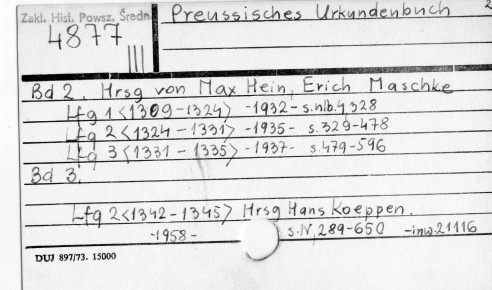 Zakl. Hist. Powsz. Średn.
4877
Preussisches Urkundenbuch 2
Bd 2. Hrsg von Max Hein, Erich Maschke
Lfg 1 <1309-1324> -1932- s. nlb. 4 328
Lfg 2 <1324-1331> -1935- s. 329-478
Lfg 3 <1331-1335> -1937- s. 479-596
Bd 3.
Lfg 2 <1342-1345> Hrsg Hans Koeppen.
-1958- s. IV, 289-650 -inw. 21116
DUJ 897/73. 15000